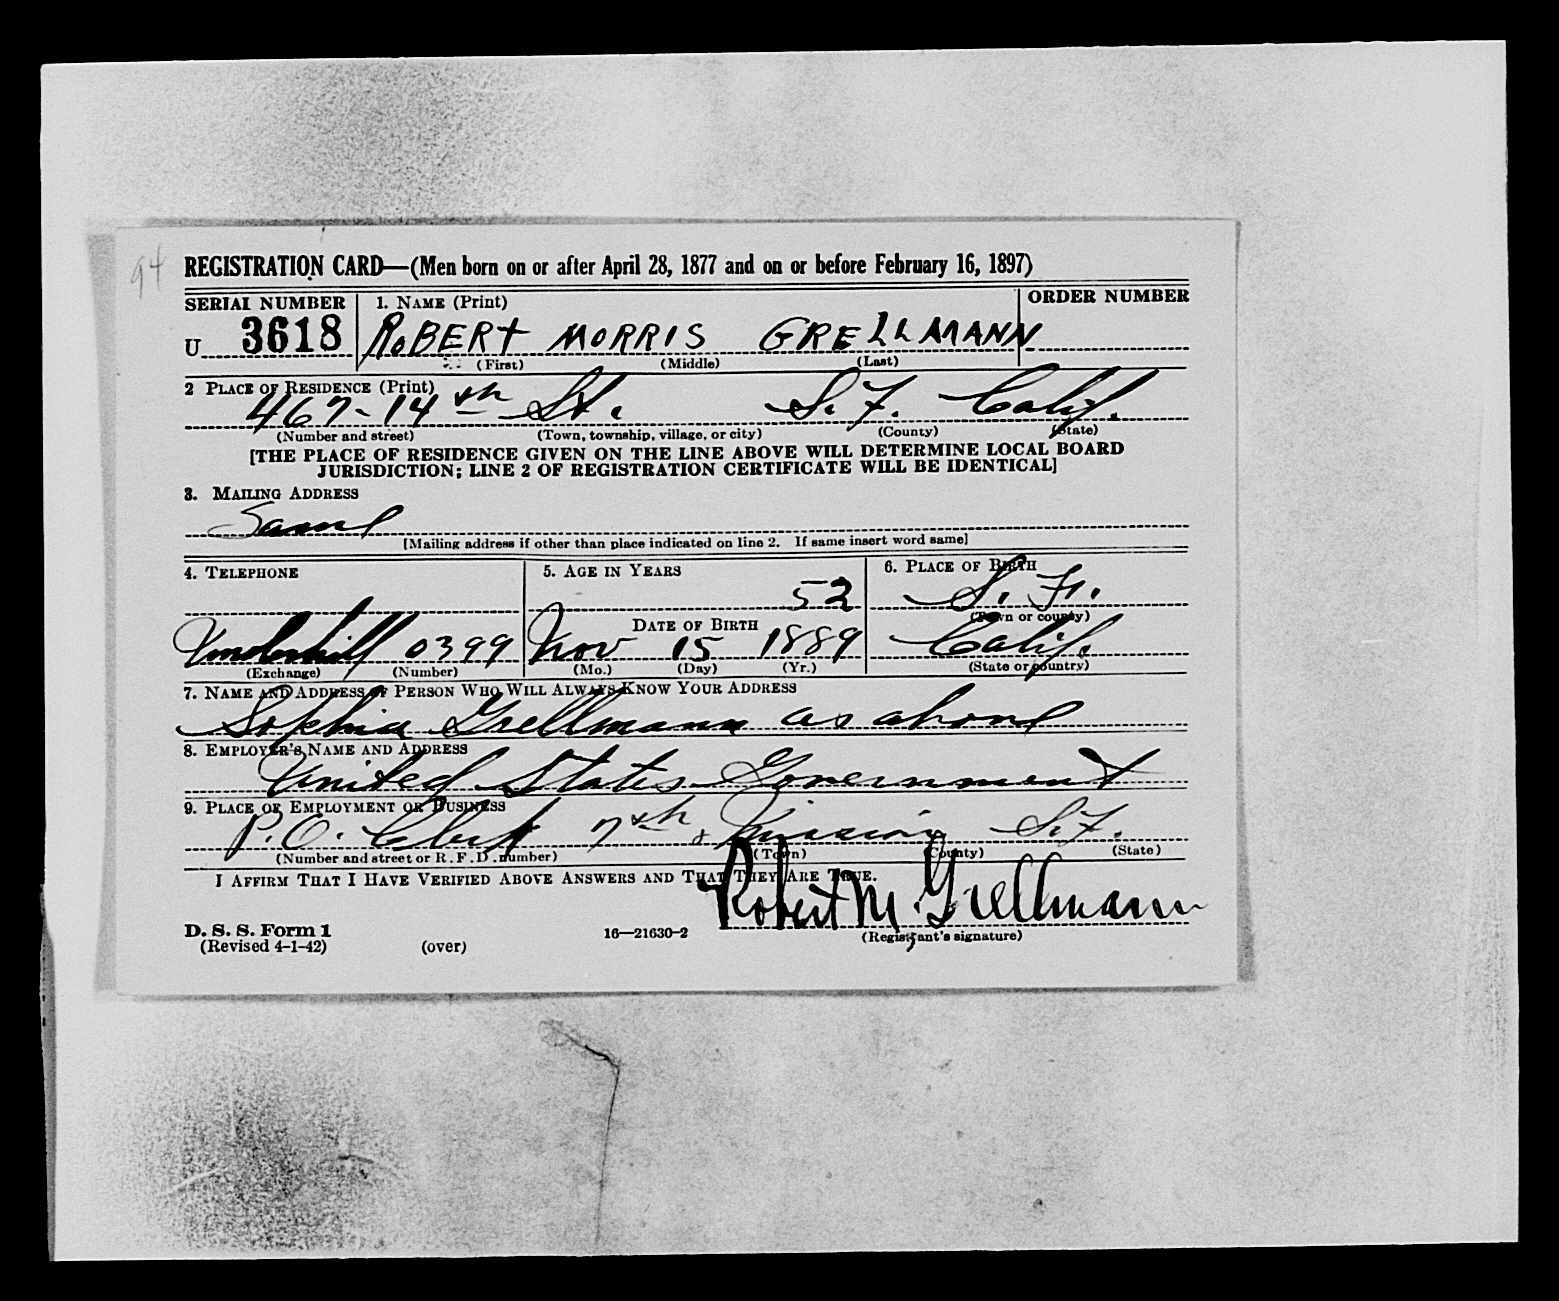 94
REGISTRATION CARD—(Men born on or after April 28, 1877 and on or before February 16, 1897)
SERIAL NUMBER 1. NAME (Print) ORDER NUMBER
U 3618 ROBERT MORRIS GRELLMANN
(First) (Middle) (Last)
2 PLACE OF RESIDENCE (Print)
467-14th St. S.F. Calif.
(Number and street) (Town, township, village, or city) (County) (State)
[THE PLACE OF RESIDENCE GIVEN ON THE LINE ABOVE WILL DETERMINE LOCAL BOARD
JURISDICTION; LINE 2 OF REGISTRATION CERTIFICATE WILL BE IDENTICAL]
3. MAILING ADDRESS
Same
[Mailing address if other than place indicated on line 2. If same insert word same]
4. TELEPHONE 5. AGE IN YEARS 6. PLACE OF BIRTH
52 S. F.
DATE OF BIRTH (Town or county)
Underhill 0399 Nov 15 1889 Calif.
(Exchange) (Number) (Mo.) (Day) (Yr.) (State or country)
7. NAME AND ADDRESS OF PERSON WHO WILL ALWAYS KNOW YOUR ADDRESS
Sophia Grellmann as above
8. EMPLOYER'S NAME AND ADDRESS
United States Government
9. PLACE OF EMPLOYMENT OR BUSINESS
P.O. Clerk 7th & Mission S.F.
(Number and street or R. F. D. number) (Town) (County) (State)
I AFFIRM THAT I HAVE VERIFIED ABOVE ANSWERS AND THAT THEY ARE TRUE.
Robert M. Grellmann
D. S. S. Form 1 16—21630-2 (Registrant's signature)
(Revised 4-1-42) (over)